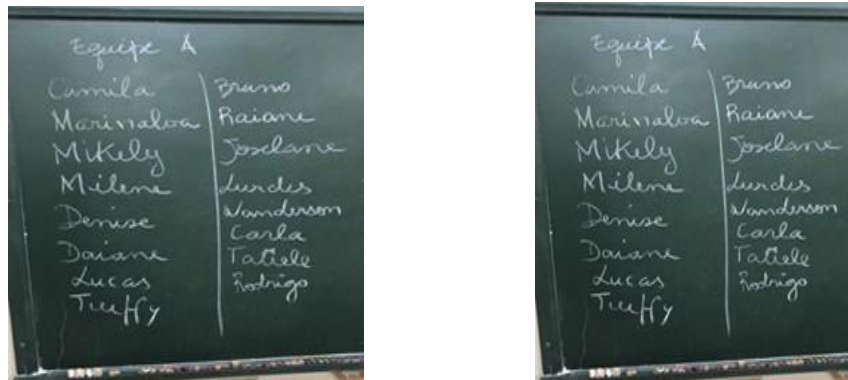 Equipe A
Camila
Marinalva
Mikely
Milene
Denise
Daiane
Lucas
Bruno
Raiane
Joselane
Lurdes
Wanderson
Carla
Tatiele
Rodrigo
Equipe A
Camila
Marinalva
Mikely
Milene
Denise
Daiane
Lucas
Bruno
Raiane
Joselane
Lurdes
Wanderson
Carla
Tatiele
Rodrigo